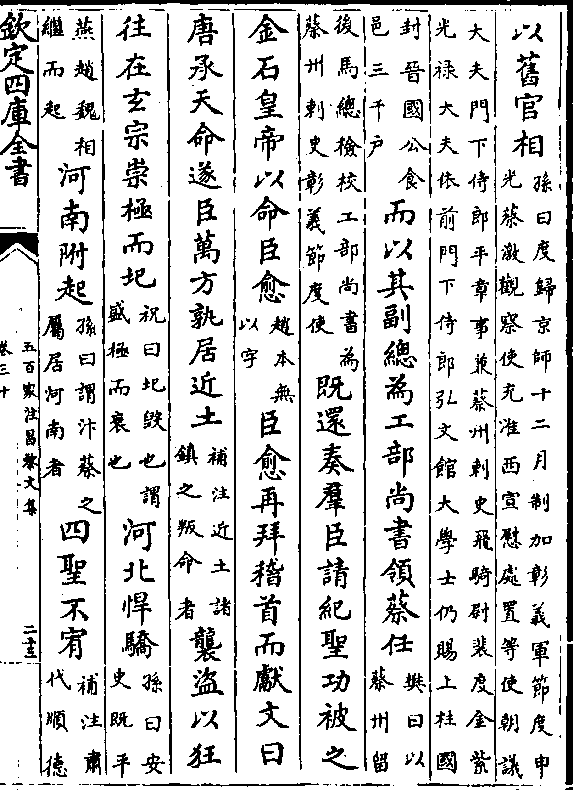 以舊官相孫曰度歸京師十二月制加彰義軍節度申光蔡激觀察使充淮西宣慰處置等使朝議
大夫門下侍郎平章事兼蔡州刺史飛騎尉裴度金紫光禄大夫依前門下侍郎弘文館大學士仍賜上柱國
封晉國公食邑三千户而以其副總為工部尚書領蔡任樊曰以蔡州留
後馬總檢校工部尚書為蔡州刺史彰義節度使既還奏羣臣請紀聖功被之
金石皇帝以命臣愈趙本無以字臣愈再拜稽首而獻文曰
唐承天命遂臣萬方孰居近土補注近土諸鎮之叛命者襲盜以狂
往在玄宗崇極而圮祝曰圮毀也謂盛極而衰也河北悍驕孫曰安史既平
燕趙魏相繼而起河南附起孫曰謂汴蔡之屬居河南者四聖不宥補注肅代順德
欽定四庫全書
五百家注昌黎文集
卷三十
二十三